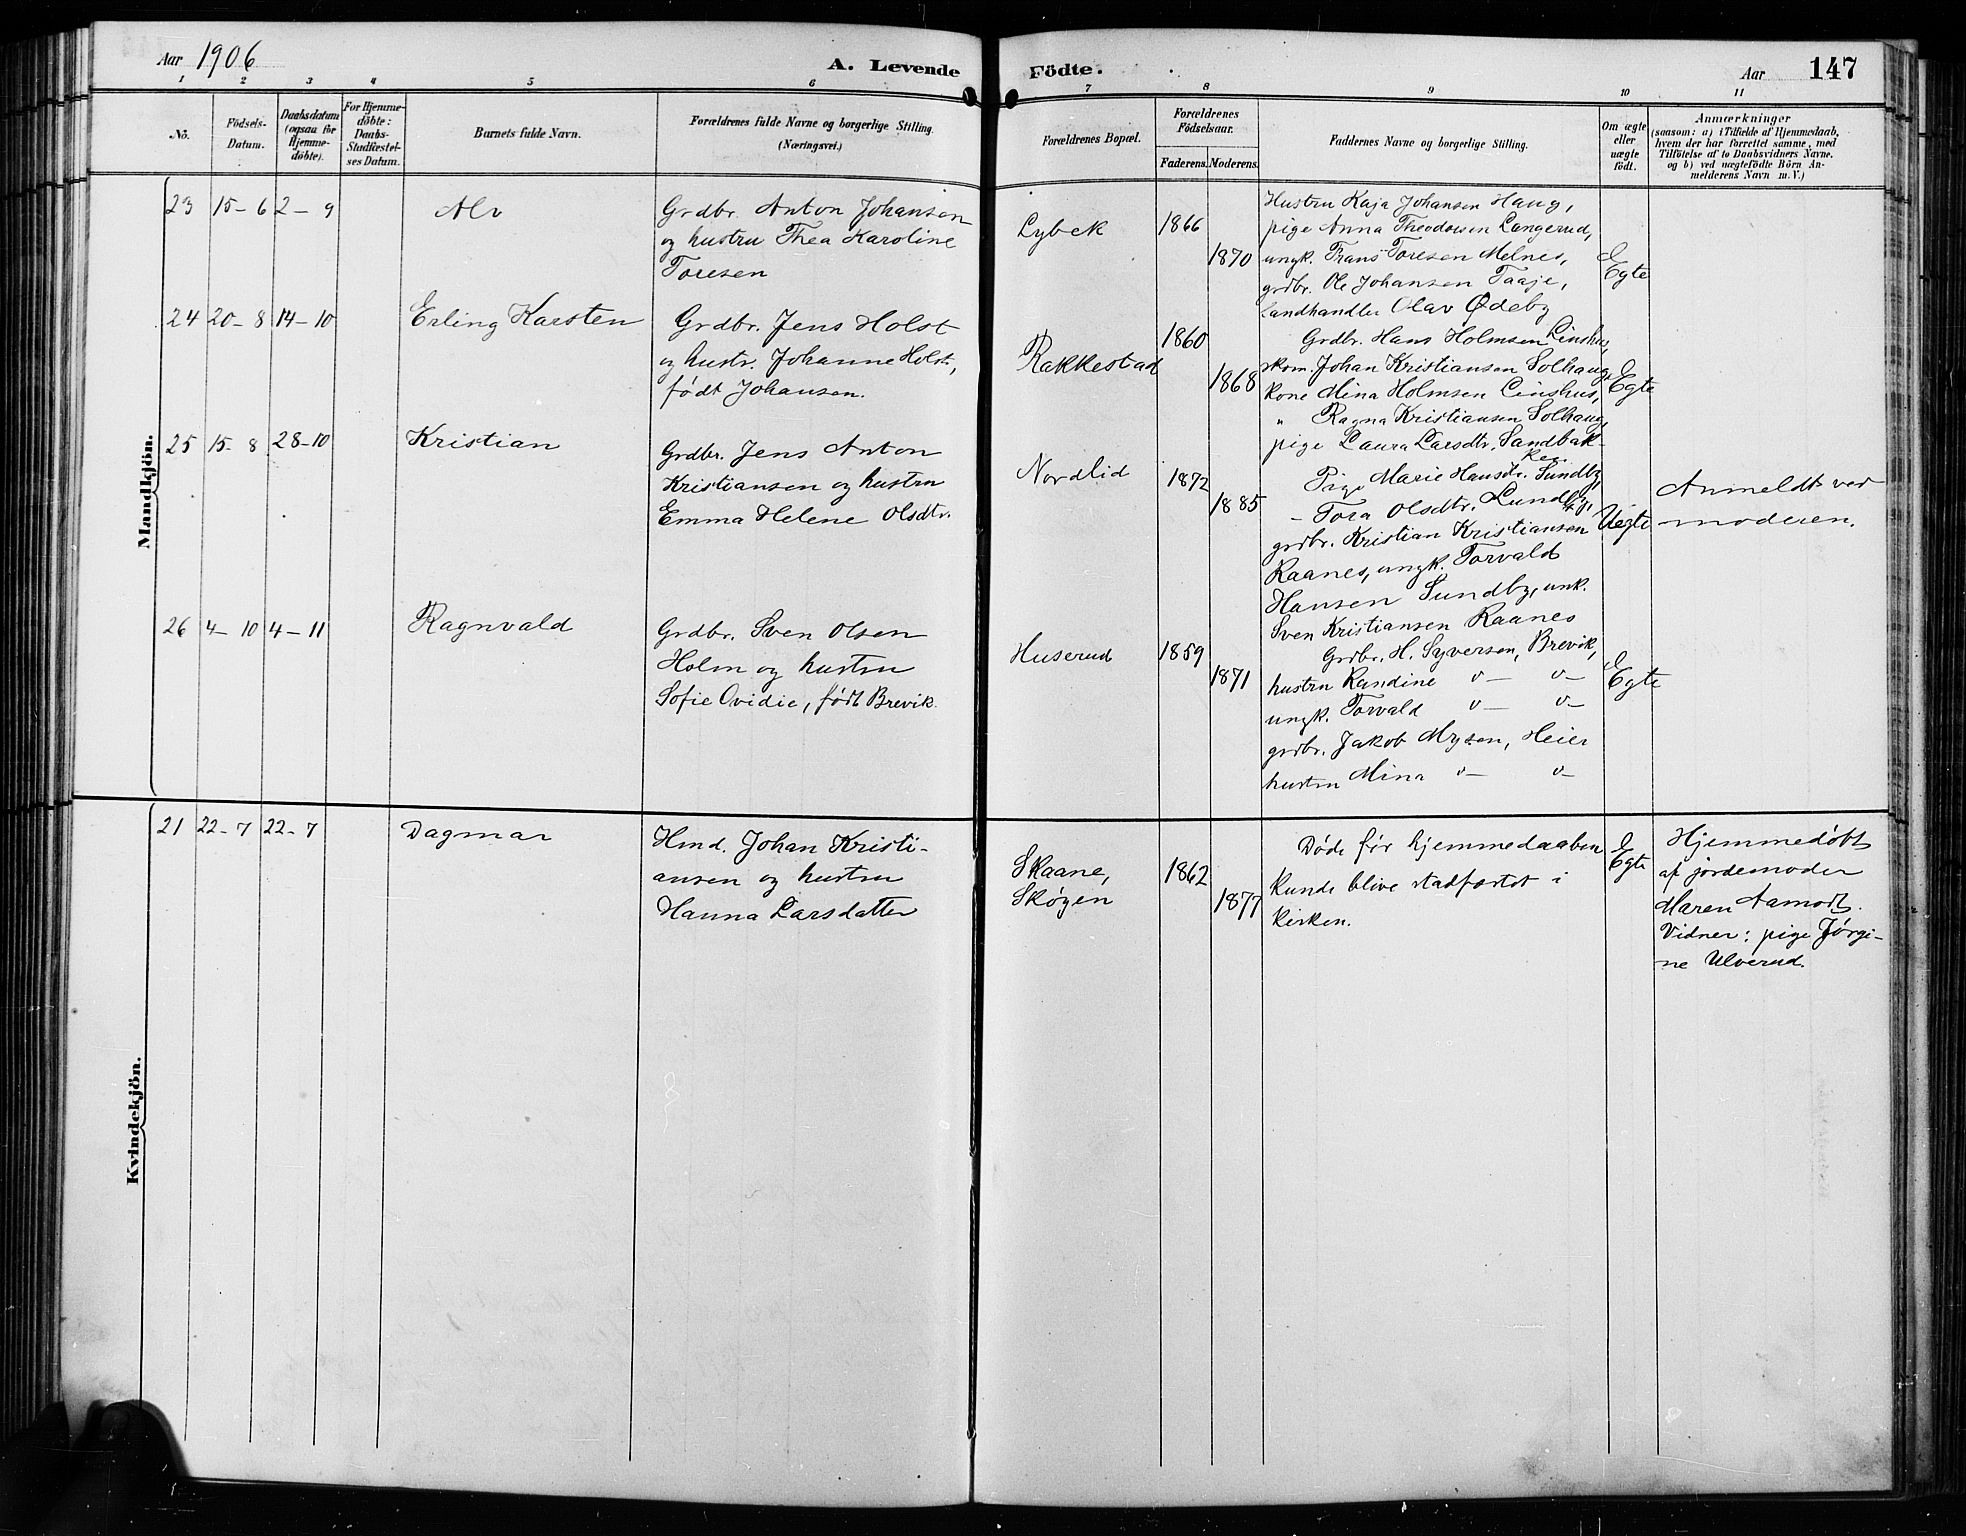 Aar 1906
A. Levende
Födte.
Aar
147
1 2 3 4 5 6 7 8 9 10 11
No.
Födsels-
Datum.
Daabsdatum
(ogsaa for
Hjemme-
döbte).
For Hjemme-
döbte:
Daabs-
Stadfæstel-
ses Datum.
Barnets fulde Navn.
Forældrenes fulde Navne og borgerlige Stilling.
(Næringsvei.)
Forældrenes Bopæl.
Forældrenes
Födselsaar.
Faderens. Moderens.
Faddernes Navne og borgerlige Stilling.
Om ægte
eller
uægte
födt.
Anmærkninger
(saasom: a) i Tilfælde af Hjemmedaab,
hvem der har forrettet samme, med
Tilföielse af to Daabsvidners Navne.
og b) ved uægtefödte Börn An-
melderens Navn m. V.)
Mandkjön.
23 15-6 2-9
Alv
Grdbr. Anton Johansen
og hustru Thea Karoline
Toresen
Lybek
1866
1870
Hustru Kaja Johansen Haug,
pige Anna Theodorsen Langerud,
ungk. Frans Toresen Melnes,
grdbr. Ole Johansen Taaje,
landhandler Olav Ødeby
Egte
24 20-8 14-10
Erling Karsten
Grdbr. Jens Holst
og hustr. Johanne Holst,
født Johansen.
Rakkestad
1860
1868
Grdbr. Hans Holmsen Linshus,
skom. Johan Kristiansen Solhaug,
kone Mina Holmsen Linshus,
" Ragna Kristiansen Solhaug,
pige Laura Larsdtr. Sandbak-
ken
Egte
25 15-8 28-10
Kristian
Grdbr. Jens Anton
Kristiansen og hustru
Emma Helene Olsdtr.
Nordlid
1872
1885
Pige Marie Hansdtr. Sundby,
- Tora Olsdtr. Lundby,
grdbr. Kristian Kristiansen
Raanes, ungk. Torvald
Hansen Sundby, unk.
Sven Kristiansen Raanes
Uegte
Anmeldt ved
moderen.
26 4-10 4-11
Ragnvald
Grdbr. Sven Olsen
Holm og hustru
Sofie Ovidie, født Brevik.
Huserud
1859
1871
Grdbr. H. Syversen, Brevik,
hustru Randine v- v-
ungk. Torvald v- v-
grdbr. Jakob Mysen, Heier
hustru Mina v- v-
Egte
Kvindekjön.
21 22-7 22-7
Dagmar
Hmd. Johan Kristi-
ansen og hustru
Hanna Larsdatter
Skaane,
Skøgen
1862
1877
Døde før hjemmedaaben
kunde blive stadfæstet i
kirken.
Egte
Hjemmedøbt
af jordemoder
Maren Aamodt.
Vidner: pige Jørgi-
ne Ulverud.